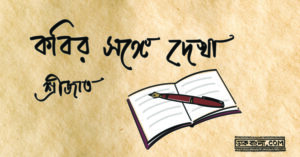 কবির সঙ্গে দেখা
শ্রীজাত